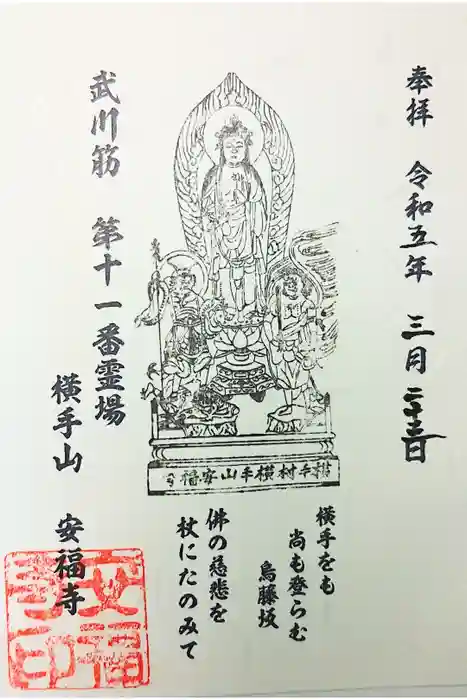 奉拝 令和五年 三月 二十三日
横手をも
尚も登らむ
鳥藤坂
佛の慈悲を
杖にたのみて
武川筋 第十一番霊場
横手山 安福寺
横手村横手山安福寺